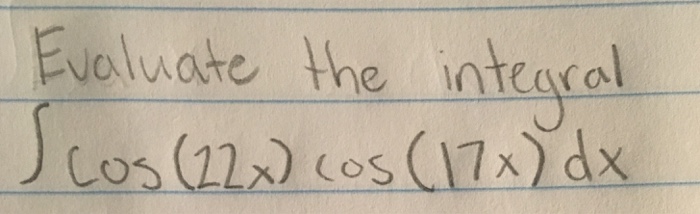 Evaluate the integral
∫ cos(22x) cos(17x) dx